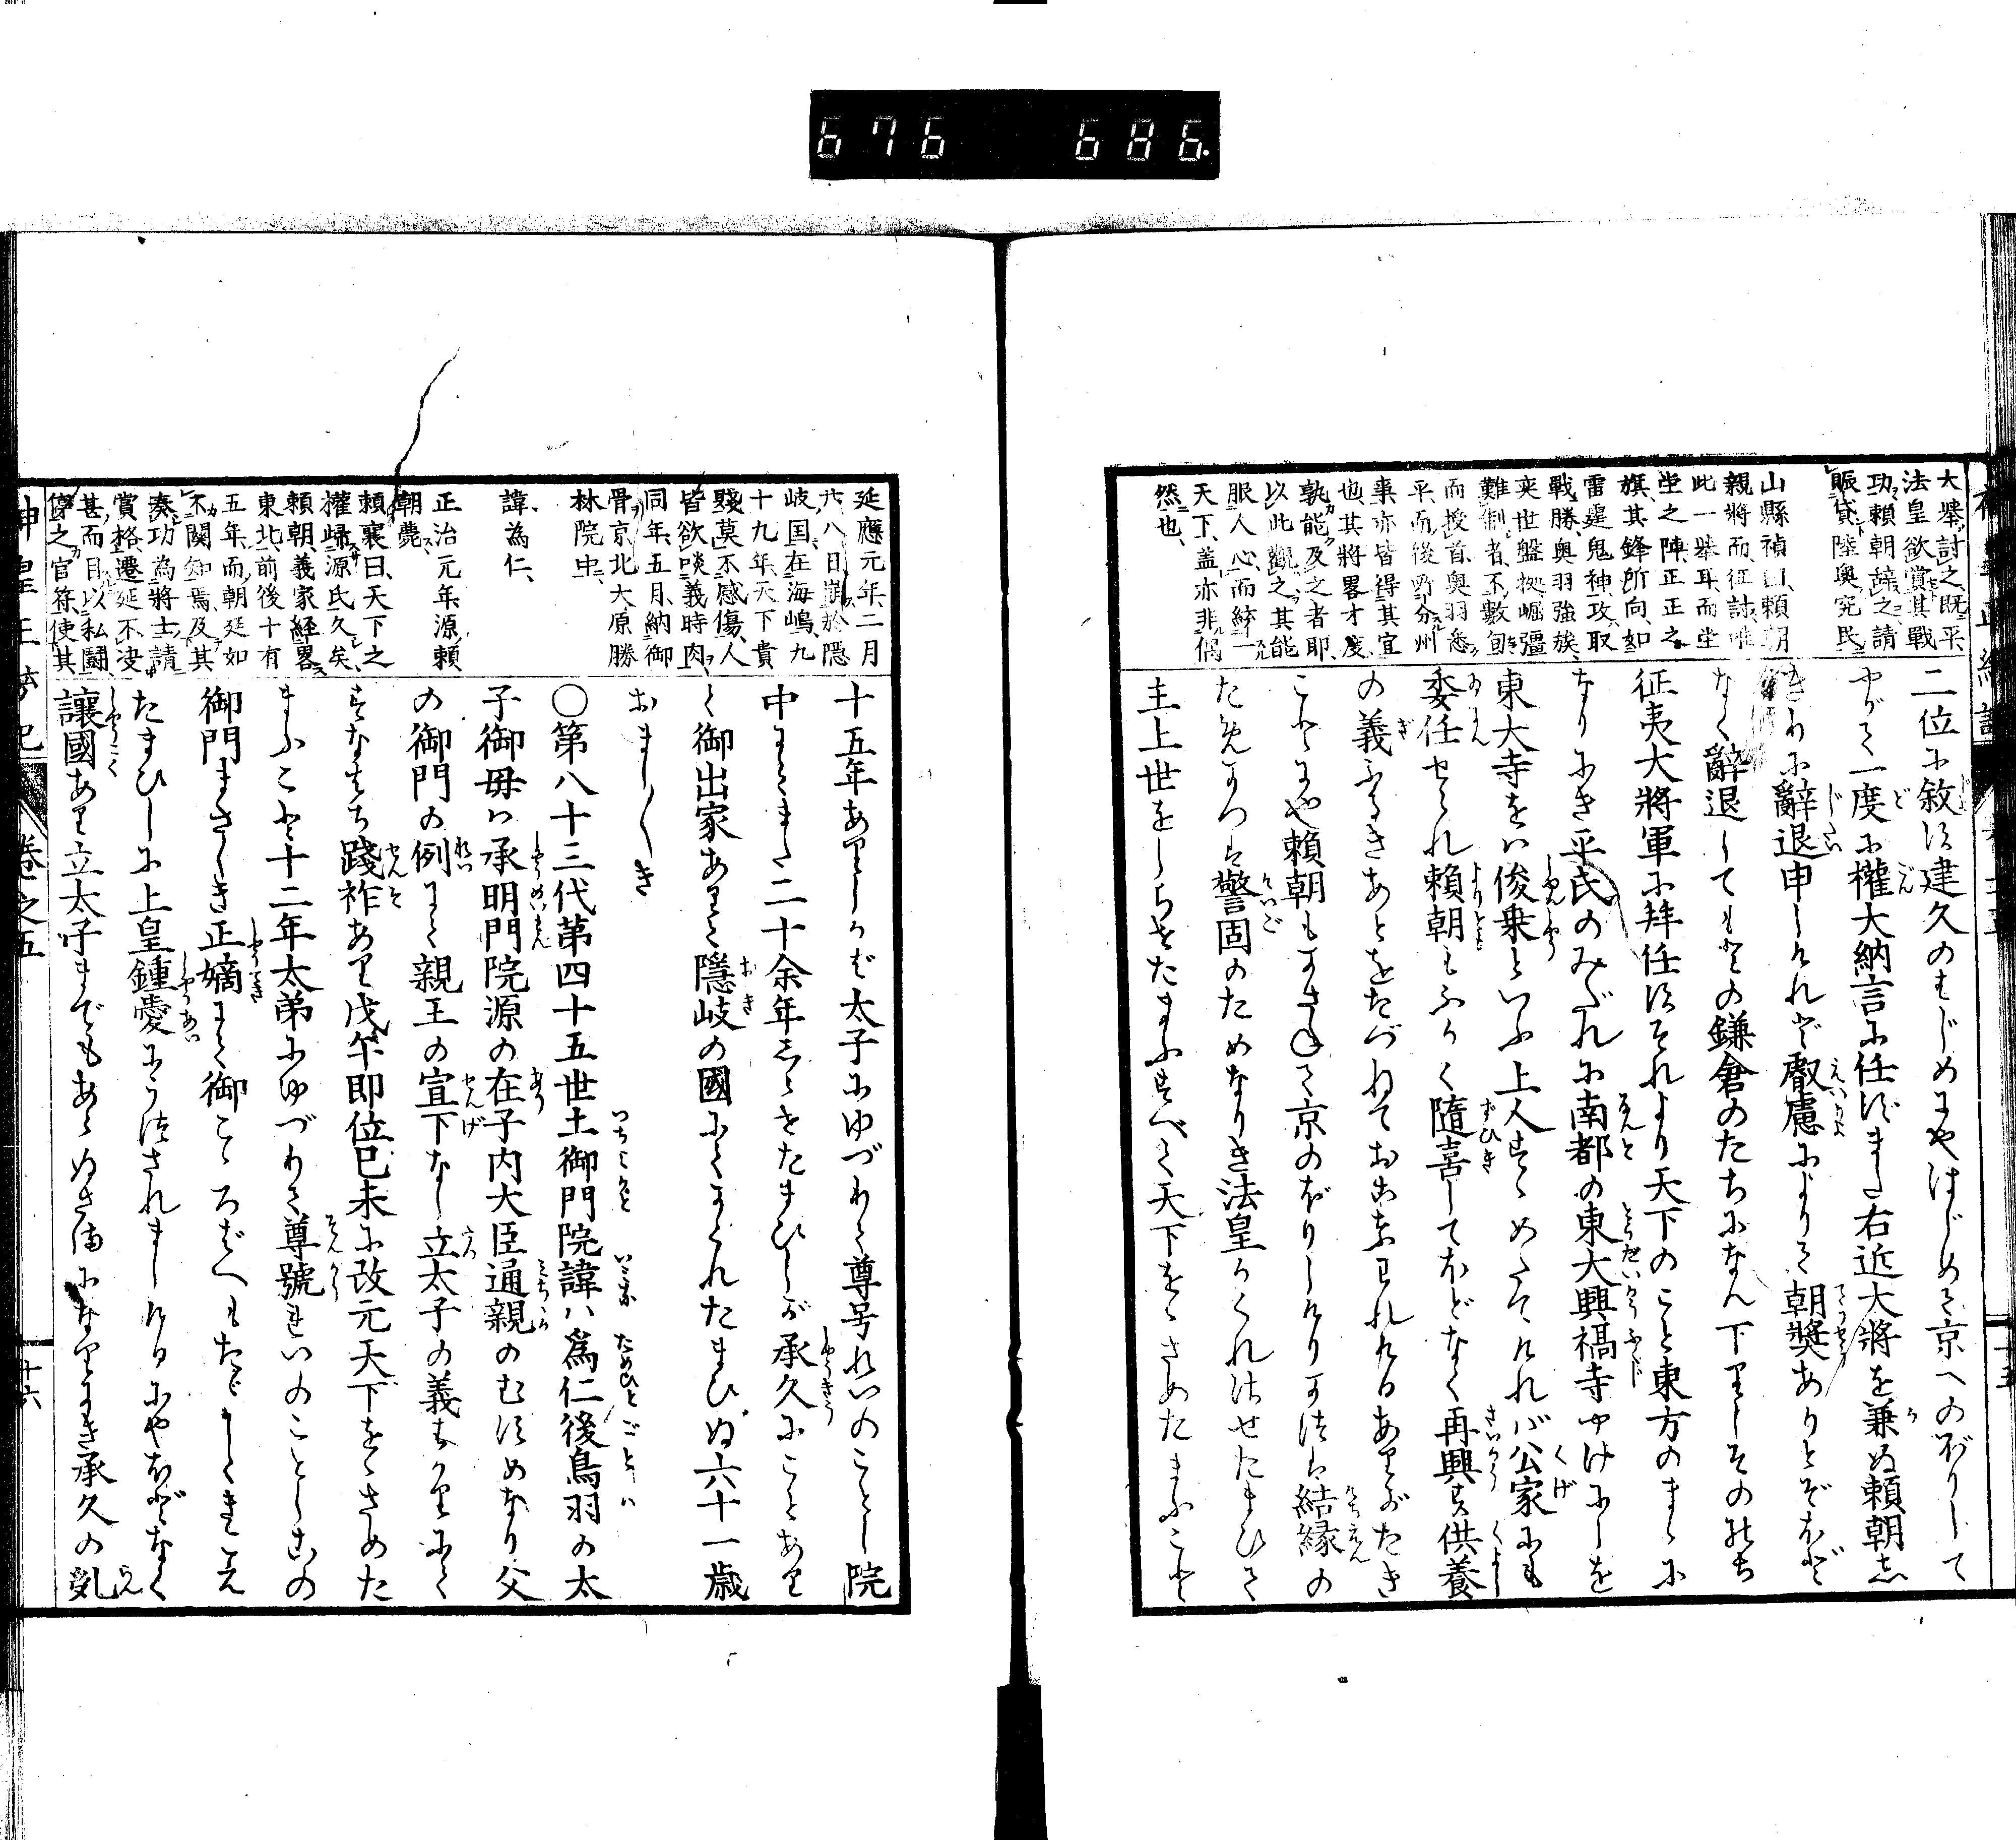 676 686.
大擧討之既平
法皇欲賞其戰
功賴朝辭之請
賑貸陸奧究民
山縣禎曰賴朝
親將而征討唯
此一擧耳而堂
堂之陣正正之
旗其鋒所向如
雷霆鬼神攻取
戰勝奧羽強族
奕世盤拠崛彊
難制者不數旬
而授首奧羽悉
平而後所分州
事亦皆得其宜
也其將畧才度
孰能及之者耶
以此觀之其能
服人心而統一
天下盖亦非偶
然也
二位に敘す建久のはじめにやはじめて京へのぼりして
やがて一度に權大納言に任ずまた右近大將を兼ぬ賴朝し
きりに辭退申しけれど叡慮によりて朝奬ありとぞほど
なく辭退してもとの鎌倉のたちになん下りしそののち
征夷大將軍に拜任すそれより天下のこと東方のまゝに
なりにき平氏のみだれに南都の東大興福寺やけにしを
東大寺をば俊乗といふ上人すゝめたてければ公家にも
委任せられ賴朝もふかく隨喜してほどなく再興す供養
の義ふるきあとをたづねておこなはれけるありがたき
ことにや賴朝もかさねて京のぼりしけりかつは結縁の
ためかつは警固のためなりき法皇かくれさせたまひて
主上世をしらせたまふすべて天下ををさめたまふこと
延應元年二月
廾八日崩於隠
岐国在海嶋九
十九年天下貴
賤莫不感傷人
皆欲啖義時肉
同年五月納御
骨京北大原勝
林院中
諱為仁
正治元年源賴
朝薨
賴襄曰天下之
權歸源氏久矣
賴朝義家経畧
東北前後十有
五年而朝廷如
不関知焉及其
奏功為將士請
賞格遷延不決
甚而目以私闘
之官符使其
十五年ありしかば太子にゆづりて尊号れいのことし院
中にてまた二十余年しらせたまひしが承久にことあり
て御出家あり隱岐の國にてかくれたまひぬ六十一歳
おましゝき
〇第八十三代第四十五世土御門院諱ハ爲仁後鳥羽の太
子御母ハ承明門院源の在子内大臣通親のむすめなり父
の御門の例にて親王の宣下なし立太子の義ばかりにて
すなはち踐祚あり戊午即位己未に改元天下ををさめた
まふこと十二年太弟にゆづりて尊號れいのことしこの
御門まさしき正嫡にて御こゝろばへもたゞしくきこえ
たまひしに上皇鍾愛にうつされましけるにやほどなく
讓國あり立太子までもあらぬさまになりにき承久の乱
神皇正統記
卷之五
十六